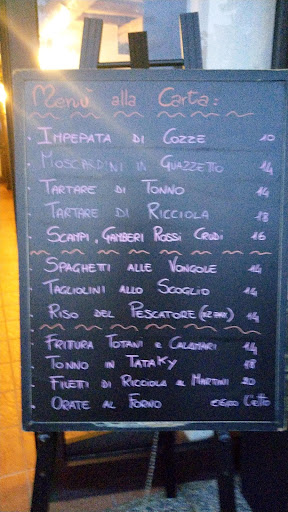 Menù alla Carta:
· Impepata di Cozze 10
· Moscardini in Guazzetto 14
· Tartare di Tonno 14
· Tartare di Ricciola 18
· Scampi, Gamberi Rossi Crudi 16
· Spaghetti alle Vongole 14
· Tagliolini allo Scoglio 14
· Riso del Pescatore 14
· Frittura Totani e Calamari 14
· Tonno in Tataky 18
· Filetti di Ricciola al Martini 20
· Orate al Forno L'etto